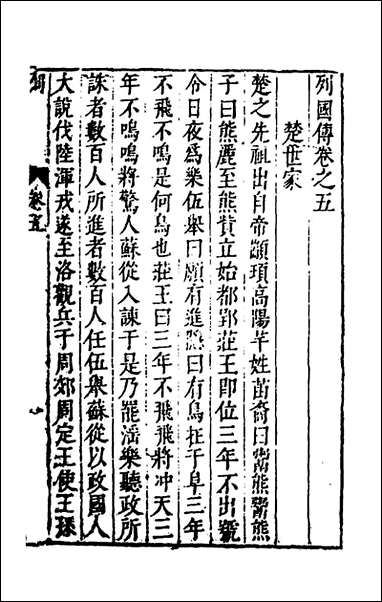 列國傳卷之五
楚世家
楚之先祖出自帝顓頊高陽芊姓苗裔曰鬻熊鬻熊
子曰熊麗至熊貲立始都郢莊王即位三年不出號
令日夜爲樂伍舉曰願有進隱曰有鳥在于阜三年
不飛不鳴是何鳥也莊王曰三年不飛飛將冲天三
年不鳴鳴將驚人蘇從入諫于是乃罷淫樂聽政所
誅者數百人所進者數百人任伍舉蘇從以政國人
大說伐陸渾戎遂至洛觀兵于周郊周定王使王孫
卷五